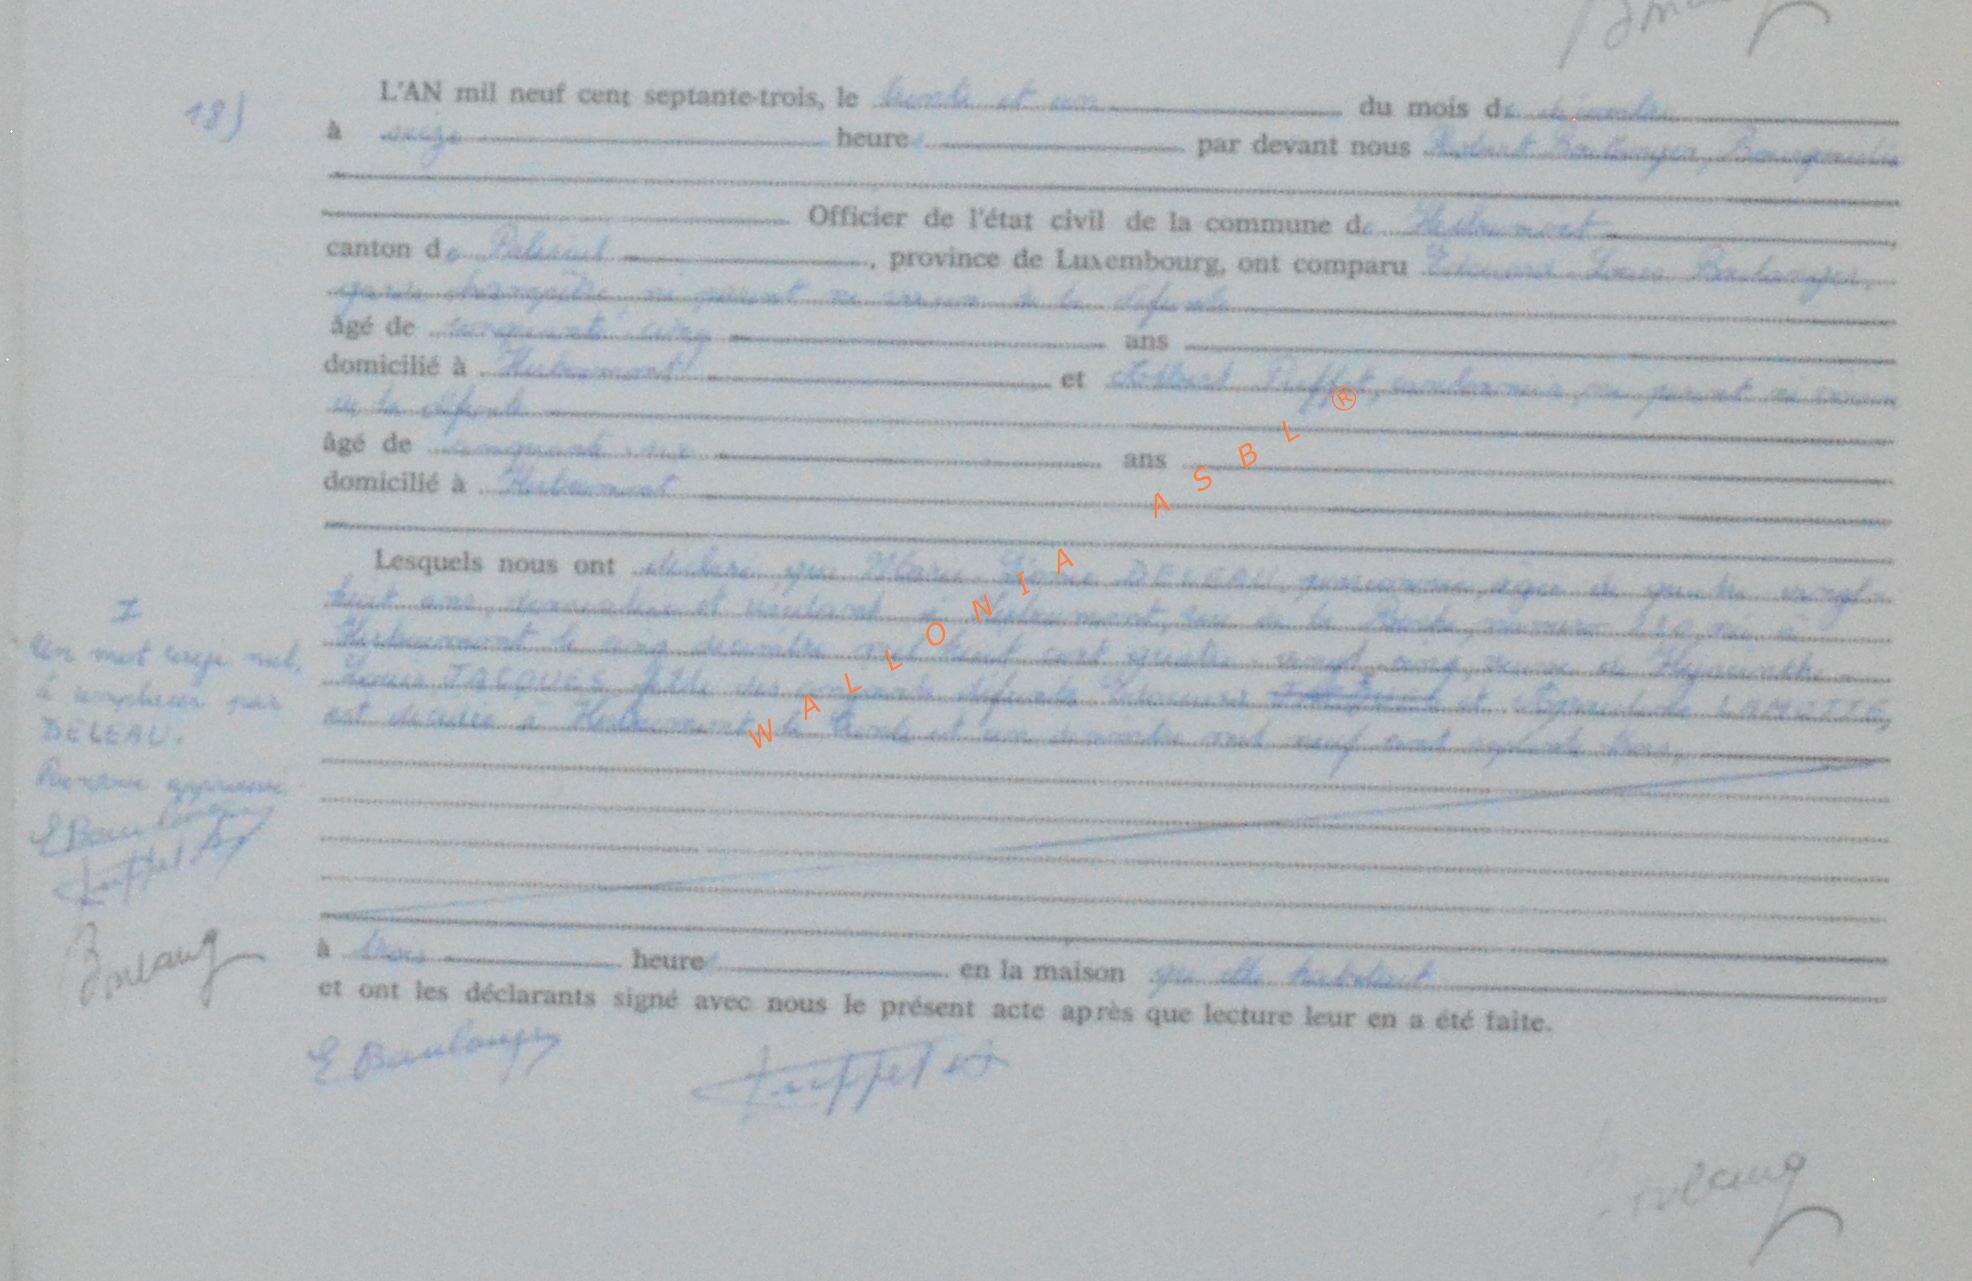 18)
L'AN mil neuf cent septante-trois, le trente et un du mois de décembre
à seize heures par devant nous Robert Boulanger, Bourgmestre
Officier de l'état civil de la commune de Herbeumont
canton de Paliseul, province de Luxembourg, ont comparu Edouard Louis Boulanger,
garde champêtre, ni parent ni voisin de la défunte
âgé de cinquante cinq ans
domicilié à Herbeumont et Albert Puffet, cantonnier, ni parent ni voisin
de la défunte
âgé de cinquante six ans
domicilié à Herbeumont
Lesquels nous ont déclaré que Marie DELEAU, pensionnée, âgée de quatre vingt
huit ans, domiciliée et résidant à Herbeumont, rue de la Roche, numéro née à
Herbeumont le cinq décembre mil huit cent quatre-vingt cinq, veuve de Hyacinthe
Louis JACQUES, fille des conjoints défunts Edouard et LAMOTTE,
est décédée à Herbeumont le trente et un décembre mil neuf cent septante trois,
I
Un mot rayé nul,
à remplacer par
DELEAU.
Renvoi approuvé
E Boulanger
Puffet
Boulang
à trois heures en la maison qu'elle habitait
et ont les déclarants signé avec nous le présent acte après que lecture leur en a été faite.
E Boulanger
Puffet
Boulang
WALLONIA ASBL ®